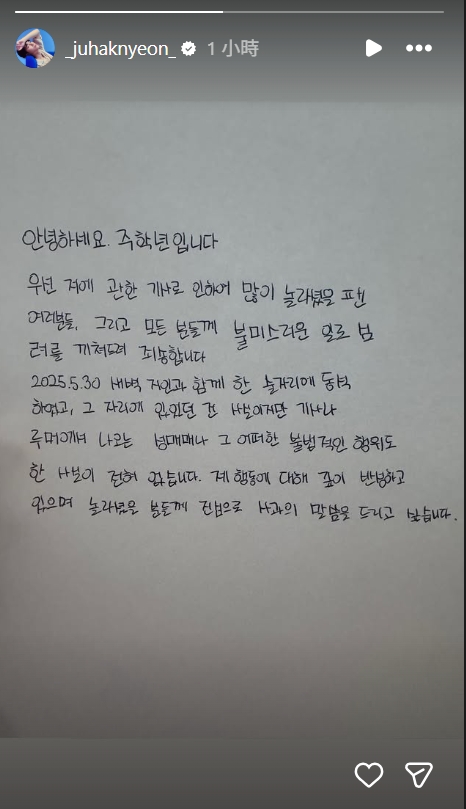 _juhaknyeon_ 1 小時
안녕하세요. 주학년입니다
우선 저에 관한 기사로 인하여 많이 놀라셨을 팬
여러분들, 그리고 모든 분들께 불미스러운 일로 심
려를 끼쳐드려 죄송합니다
2025.5.30 새벽 지인과 함께 한 술자리에 동석
하였고, 그 자리에 있었던 건 사실이지만 기사나
루머에서 나오는 성매매나 그 어떠한 불법적인 행위도
한 사실이 전혀 없습니다. 제 행동에 대해 깊이 반성하고
있으며 놀라셨을 분들께 진심으로 사과의 말씀을 드리고 싶습니다.